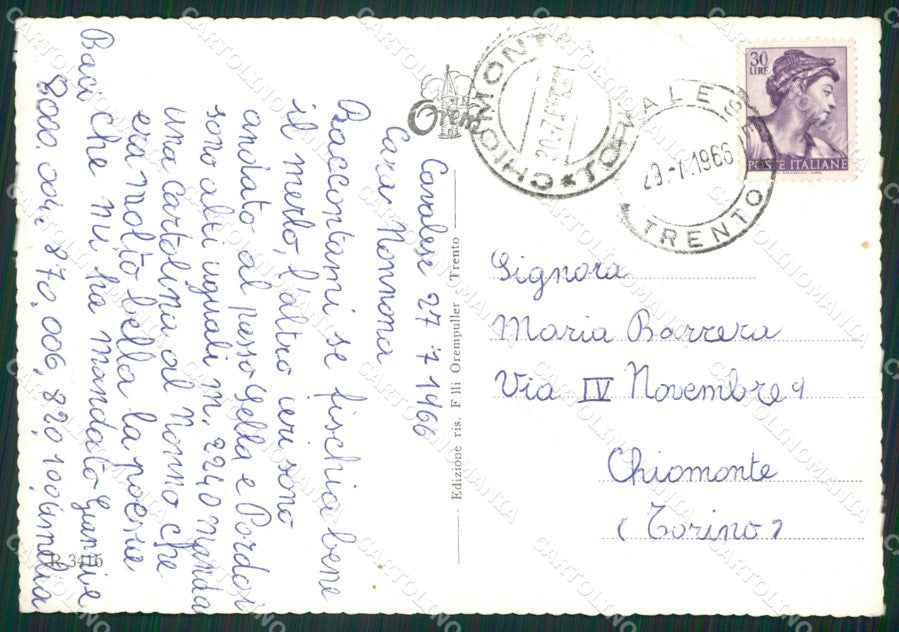 Cavalese 27 7 1966
Cara Nonnona
Raccontami se fischia bene
il merlo, l'altro ieri sono
andato al passo Sella e Pordoi
sono alti uguali m. 2240 Manda
una cartolina al Nonno che
era molto bella la poesia
che mi ha mandato
Baci
8000.004.870.006.82.0.100
Orem
Edizione ris. F.lli Orempuller - Trento
R 3416
CHIOMONTE TO
30.7
CAVALESE
29.-7.1966
TRENTO
30
LIRE
POSTE ITALIANE
Signora
Maria Barrera
Via IV Novembre 9
Chiomonte
(Torino)
CARTOLINOMANIA